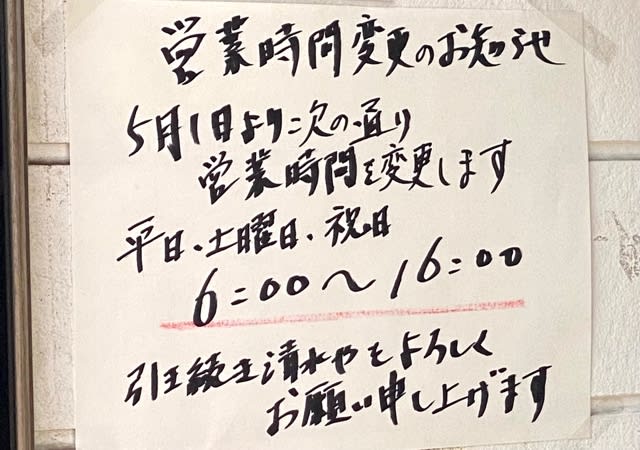 営業時間変更のお知らせ
5月1日より次の通り
営業時間を変更します
平日、土曜日、祝日
6:00〜16:00
引き続き清水やをよろしく
お願い申し上げます